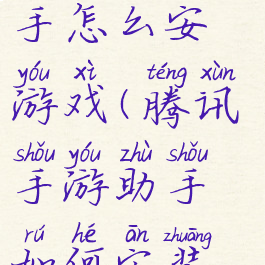 手怎么安
yóu xì téng xùn
游戏(腾讯
shǒu yóu zhù shǒu
手游助手
rú hé ān zhuāng
如何安装